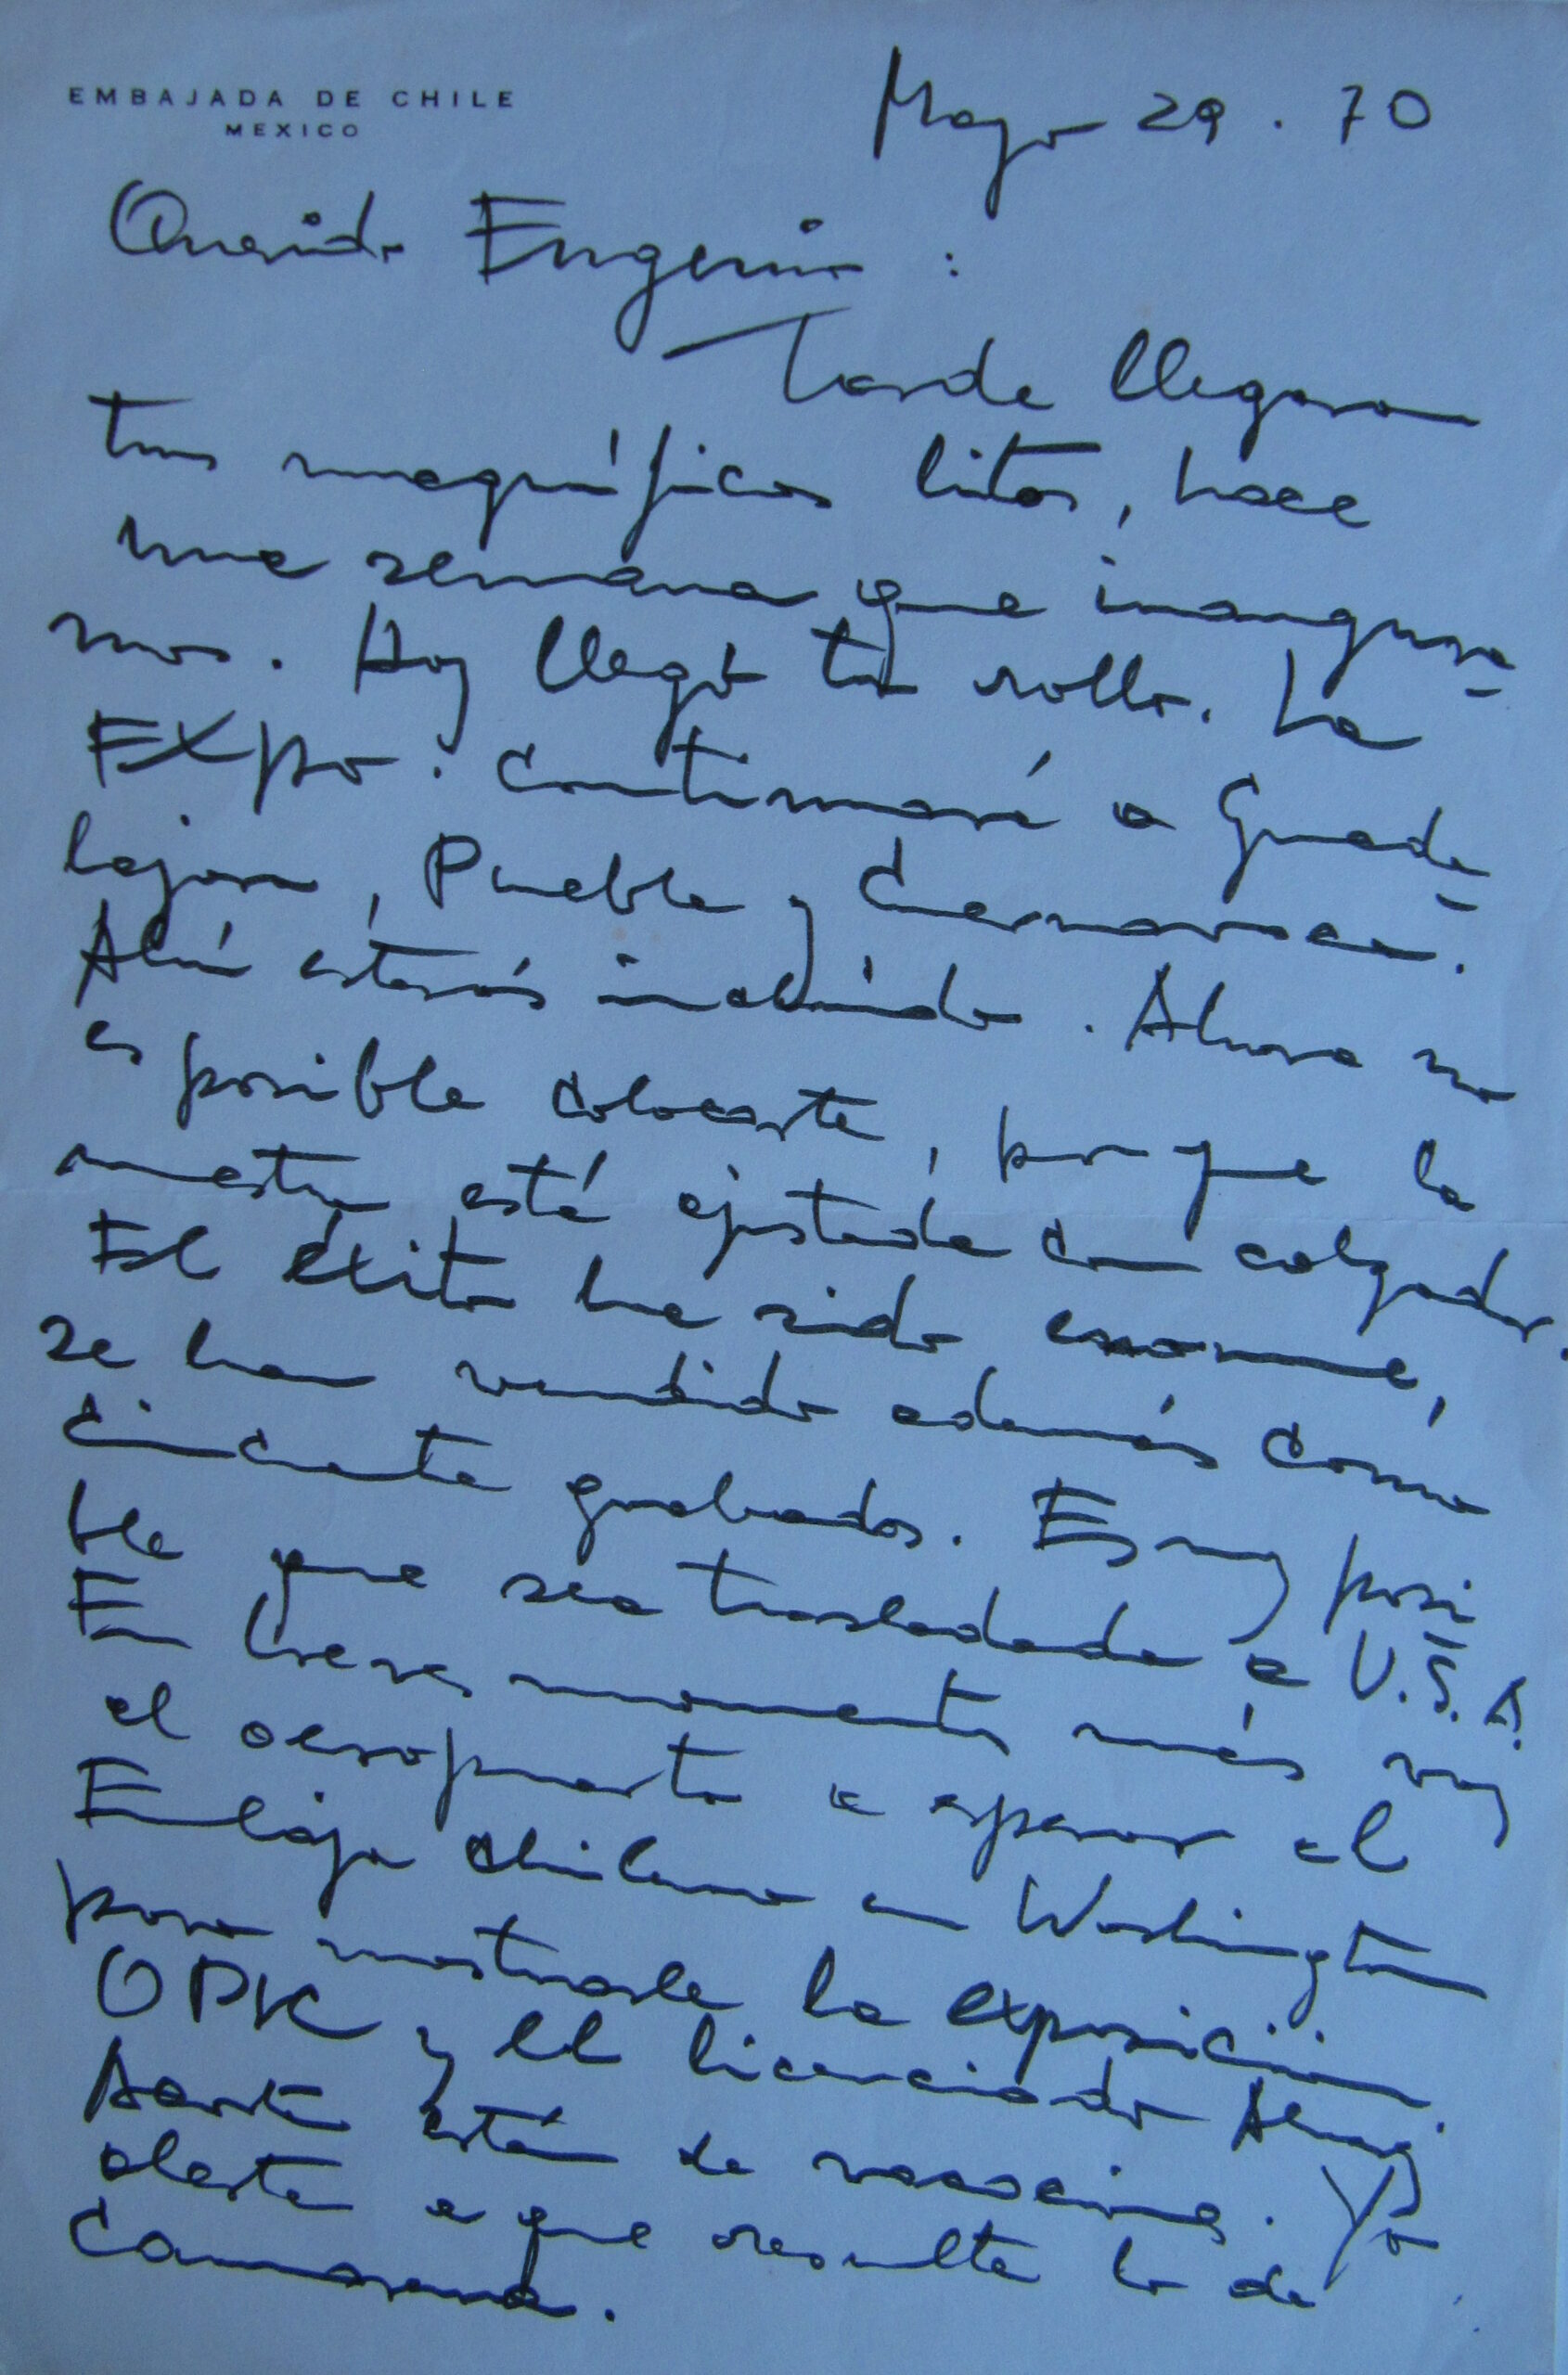 EMBAJADA DE CHILE
MEXICO
Mayo 29 . 70
Querido Eugenio :
Tarde llegaron
tus magníficos litos, hace
una semana que inaugura-
mos. Hoy llegó tu rollo. La
EXPO. continuará a Guada-
lajara, Puebla y Cuernavaca.
Ahí estarás incluído. Ahora no
es posible colocarte, porque la
muestra está ajustada con colgador.
El éxito ha sido enorme,
se han vendido además como
cincuenta grabados. Es muy posi-
ble que sea trasladada a U.S.A.
En breves momentos más voy
al aeropuerto a esperar al
Embaja chileno en Washington
para mostrarle la exposición.
y el licenciado
están de vacaciones. Yo
alerta a que resulte lo de
Camarena.